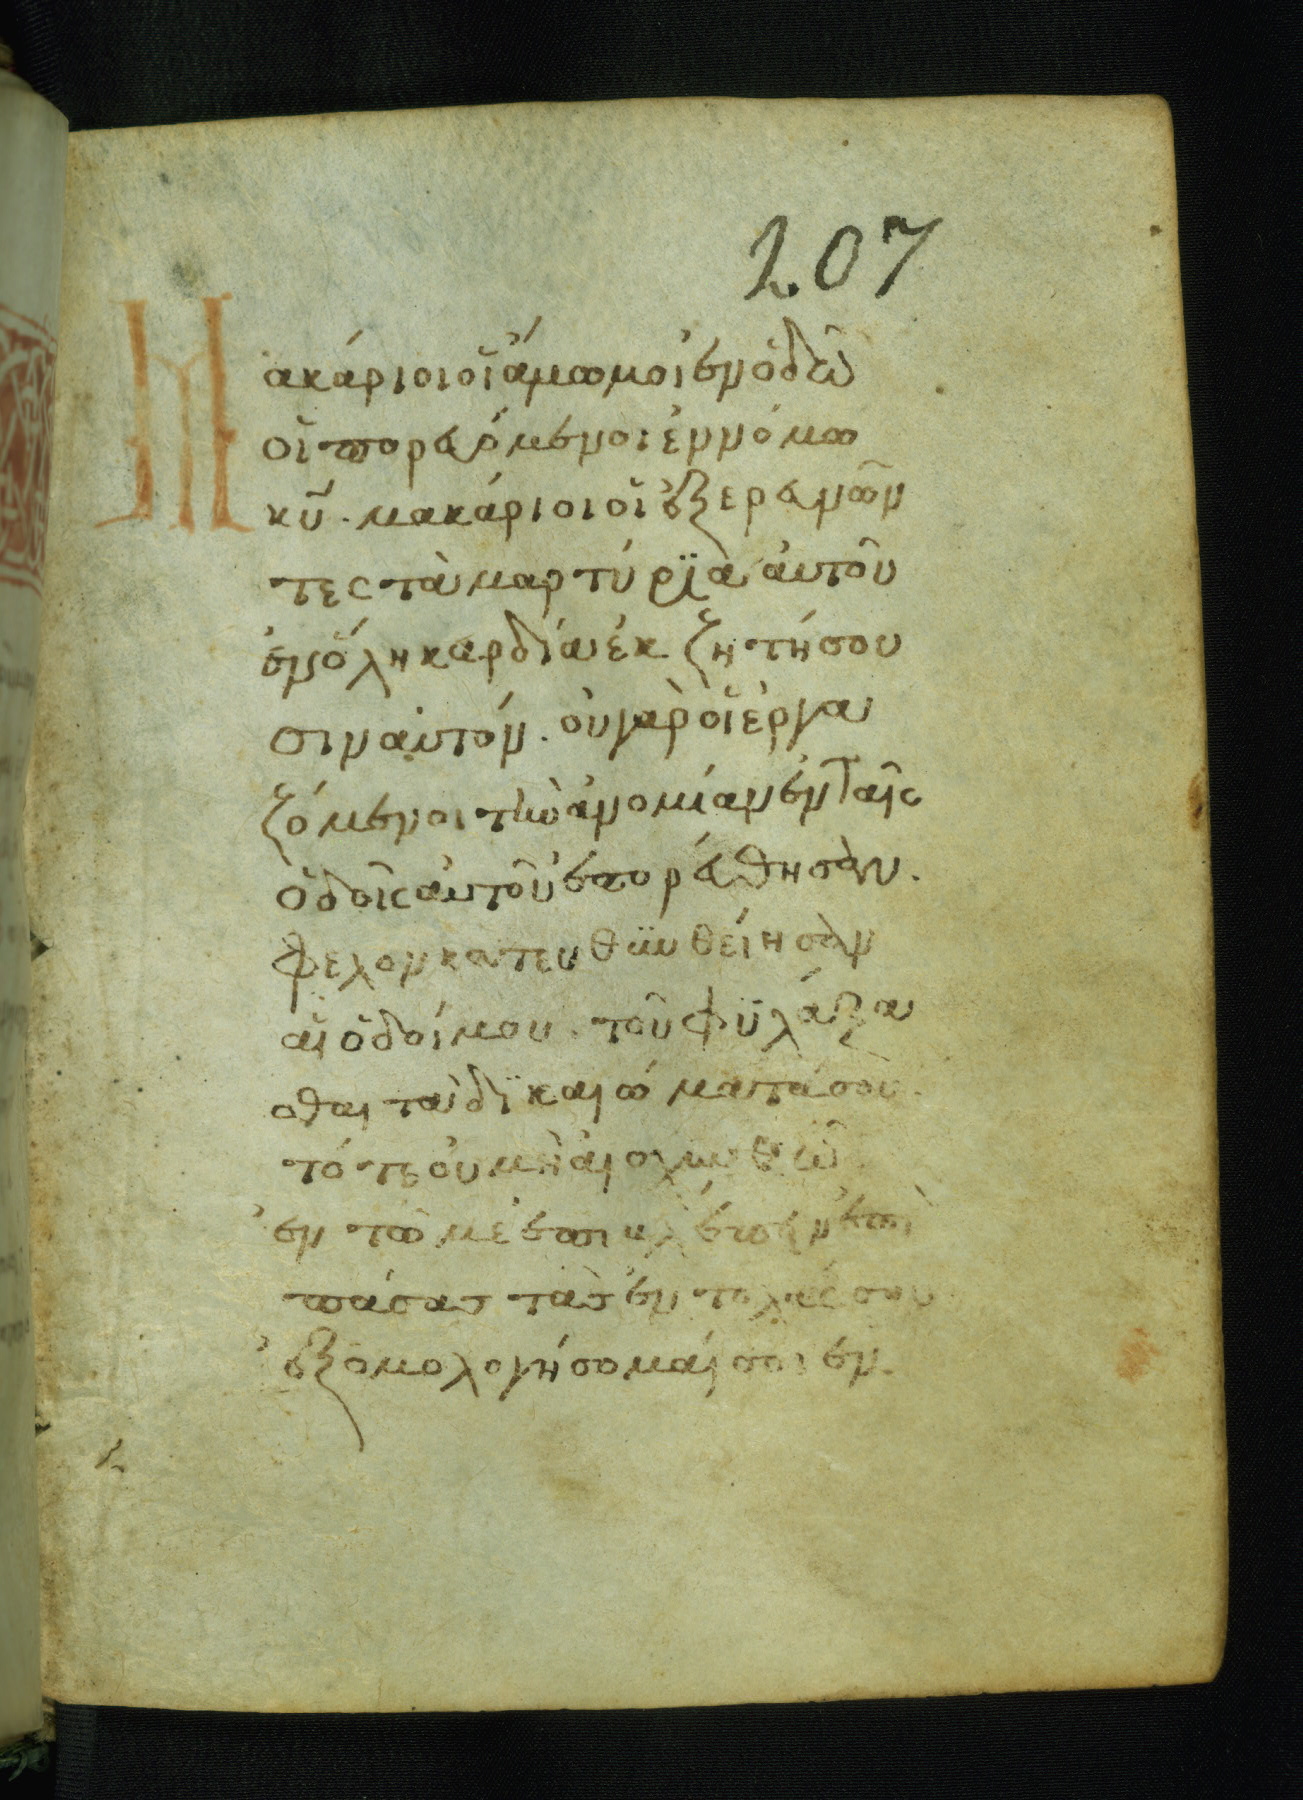 207
Μακάριοι οἱ ἄμωμοι ἐν ὁδῶ
οἱ πορευόμενοι ἐν νόμω
κ̅υ̅. μακάριοι οἱ ἐξερευνῶν
τες τὰ μαρτύρϊα αὐτοῦ
ἐν ὅλη καρδία ἐκζητήσου
σιν αὐτόν. οὐ γὰρ οἱ ἐργα
ζόμενοι τὴν ἀνομίαν ἐν ταῖς
ὁδοῖς αὐτοῦ ἐπορεύθησαν.
ὄφελον κατευθϋνθείησαν
αἱ ὁδοί μου. τοῦ φϋλάξα
σθαι τὰ δϊκαιώματά σου.
τότε οὐ μὴ αἰσχυνθῶ
ἐν τῶ με ἐπιβλέπειν ἐπὶ
πάσας τὰς ἐντολάς σου
ἐξομολογήσομαί σοι ἐν